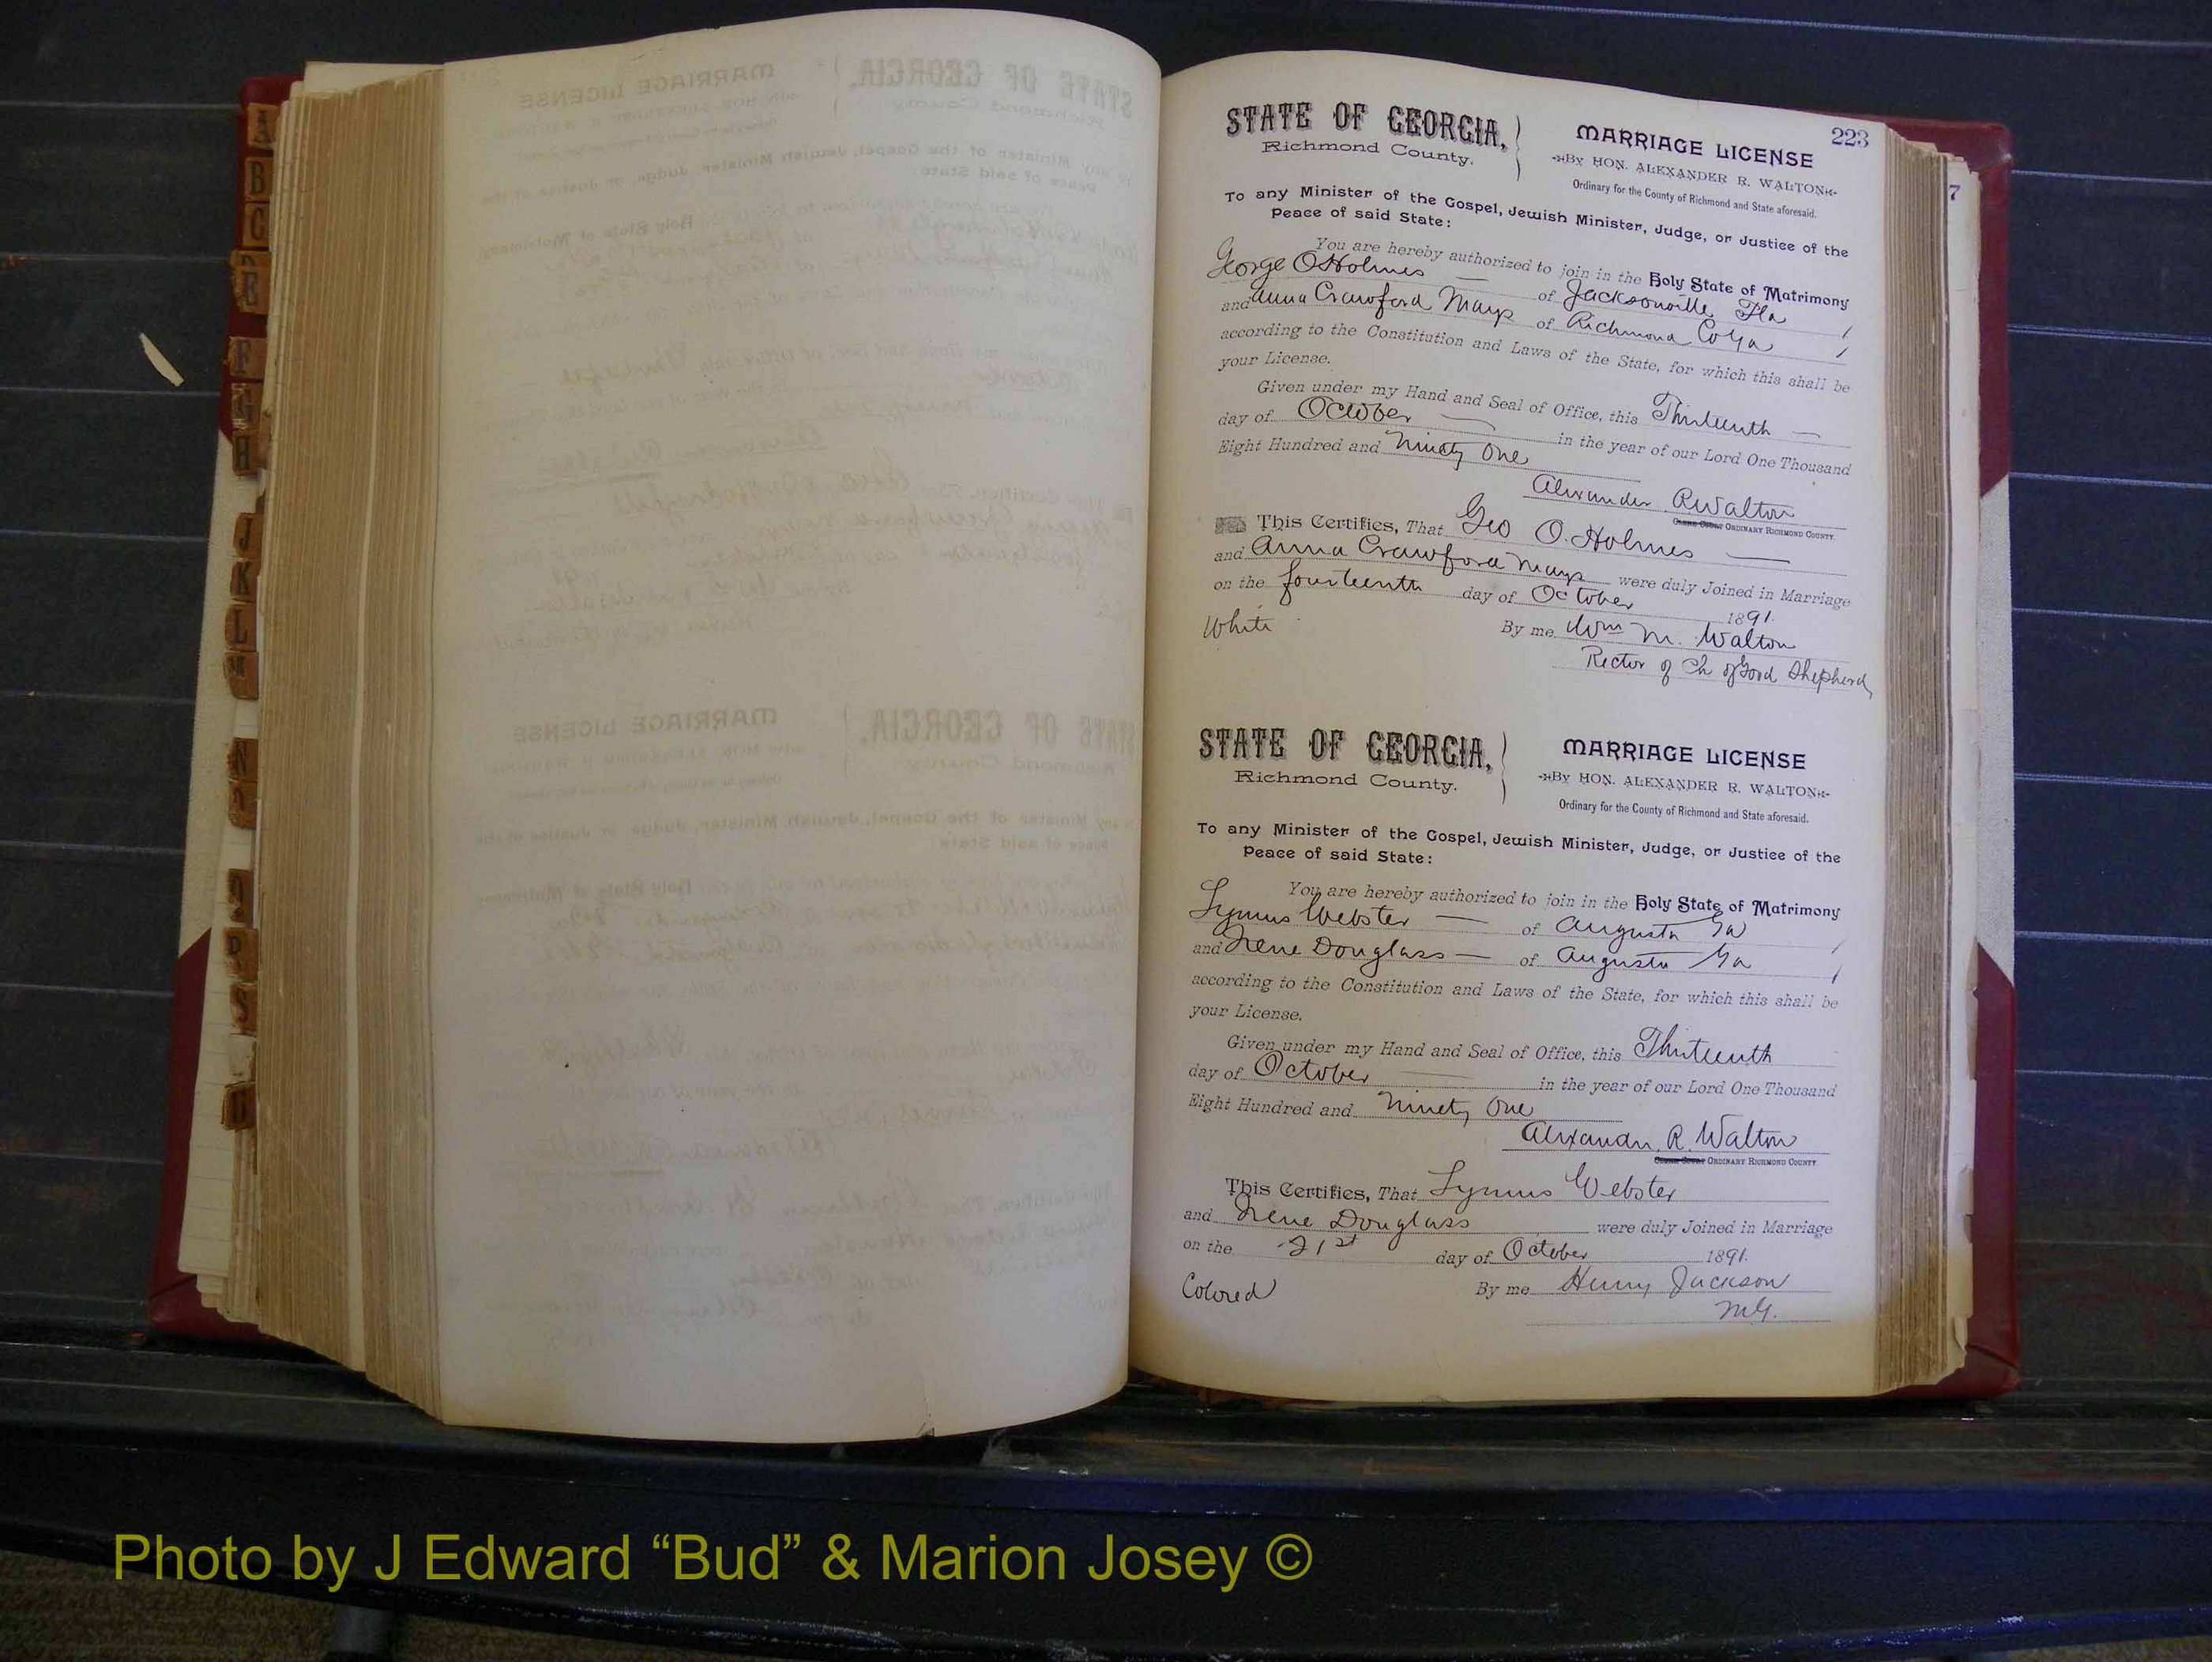 A
B
C
E
F
G
H
J
K
L
M
N
O
P
S
223
7
STATE OF GEORGIA,
Richmond County.
MARRIAGE LICENSE
By HON. ALEXANDER R. WALTON
Ordinary for the County of Richmond and State aforesaid.
To any Minister of the Gospel, Jewish Minister, Judge, or Justice of the
Peace of said State:
You are hereby authorized to join in the Holy State of Matrimony
George O Holmes of Jacksonville Fla
and Anna Crawford Mays of Richmond Co Ga
according to the Constitution and Laws of the State, for which this shall be
your License.
Given under my Hand and Seal of Office, this Thirteenth
day of October in the year of our Lord One Thousand
Eight Hundred and Ninety One
Alexander R Walton
ORDINARY RICHMOND COUNTY.
This Certifies, That Geo O. Holmes
and Anna Crawford Mays were duly Joined in Marriage
on the fourteenth day of October 1891.
White By me Wm M. Walton
Rector of Ch of Good Shepherd
STATE OF GEORGIA,
Richmond County.
MARRIAGE LICENSE
By HON. ALEXANDER R. WALTON
Ordinary for the County of Richmond and State aforesaid.
To any Minister of the Gospel, Jewish Minister, Judge, or Justice of the
Peace of said State:
You are hereby authorized to join in the Holy State of Matrimony
Lymus Webster of Augusta Ga
and Irene Douglass of Augusta Ga
according to the Constitution and Laws of the State, for which this shall be
your License.
Given under my Hand and Seal of Office, this Thirteenth
day of October in the year of our Lord One Thousand
Eight Hundred and Ninety One
Alexander R. Walton
ORDINARY RICHMOND COUNTY
This Certifies, That Lymus Webster
and Irene Douglass were duly Joined in Marriage
on the 21st day of October 1891.
Colored By me Henry Jackson
M.G.
Photo by J Edward “Bud” & Marion Josey ©